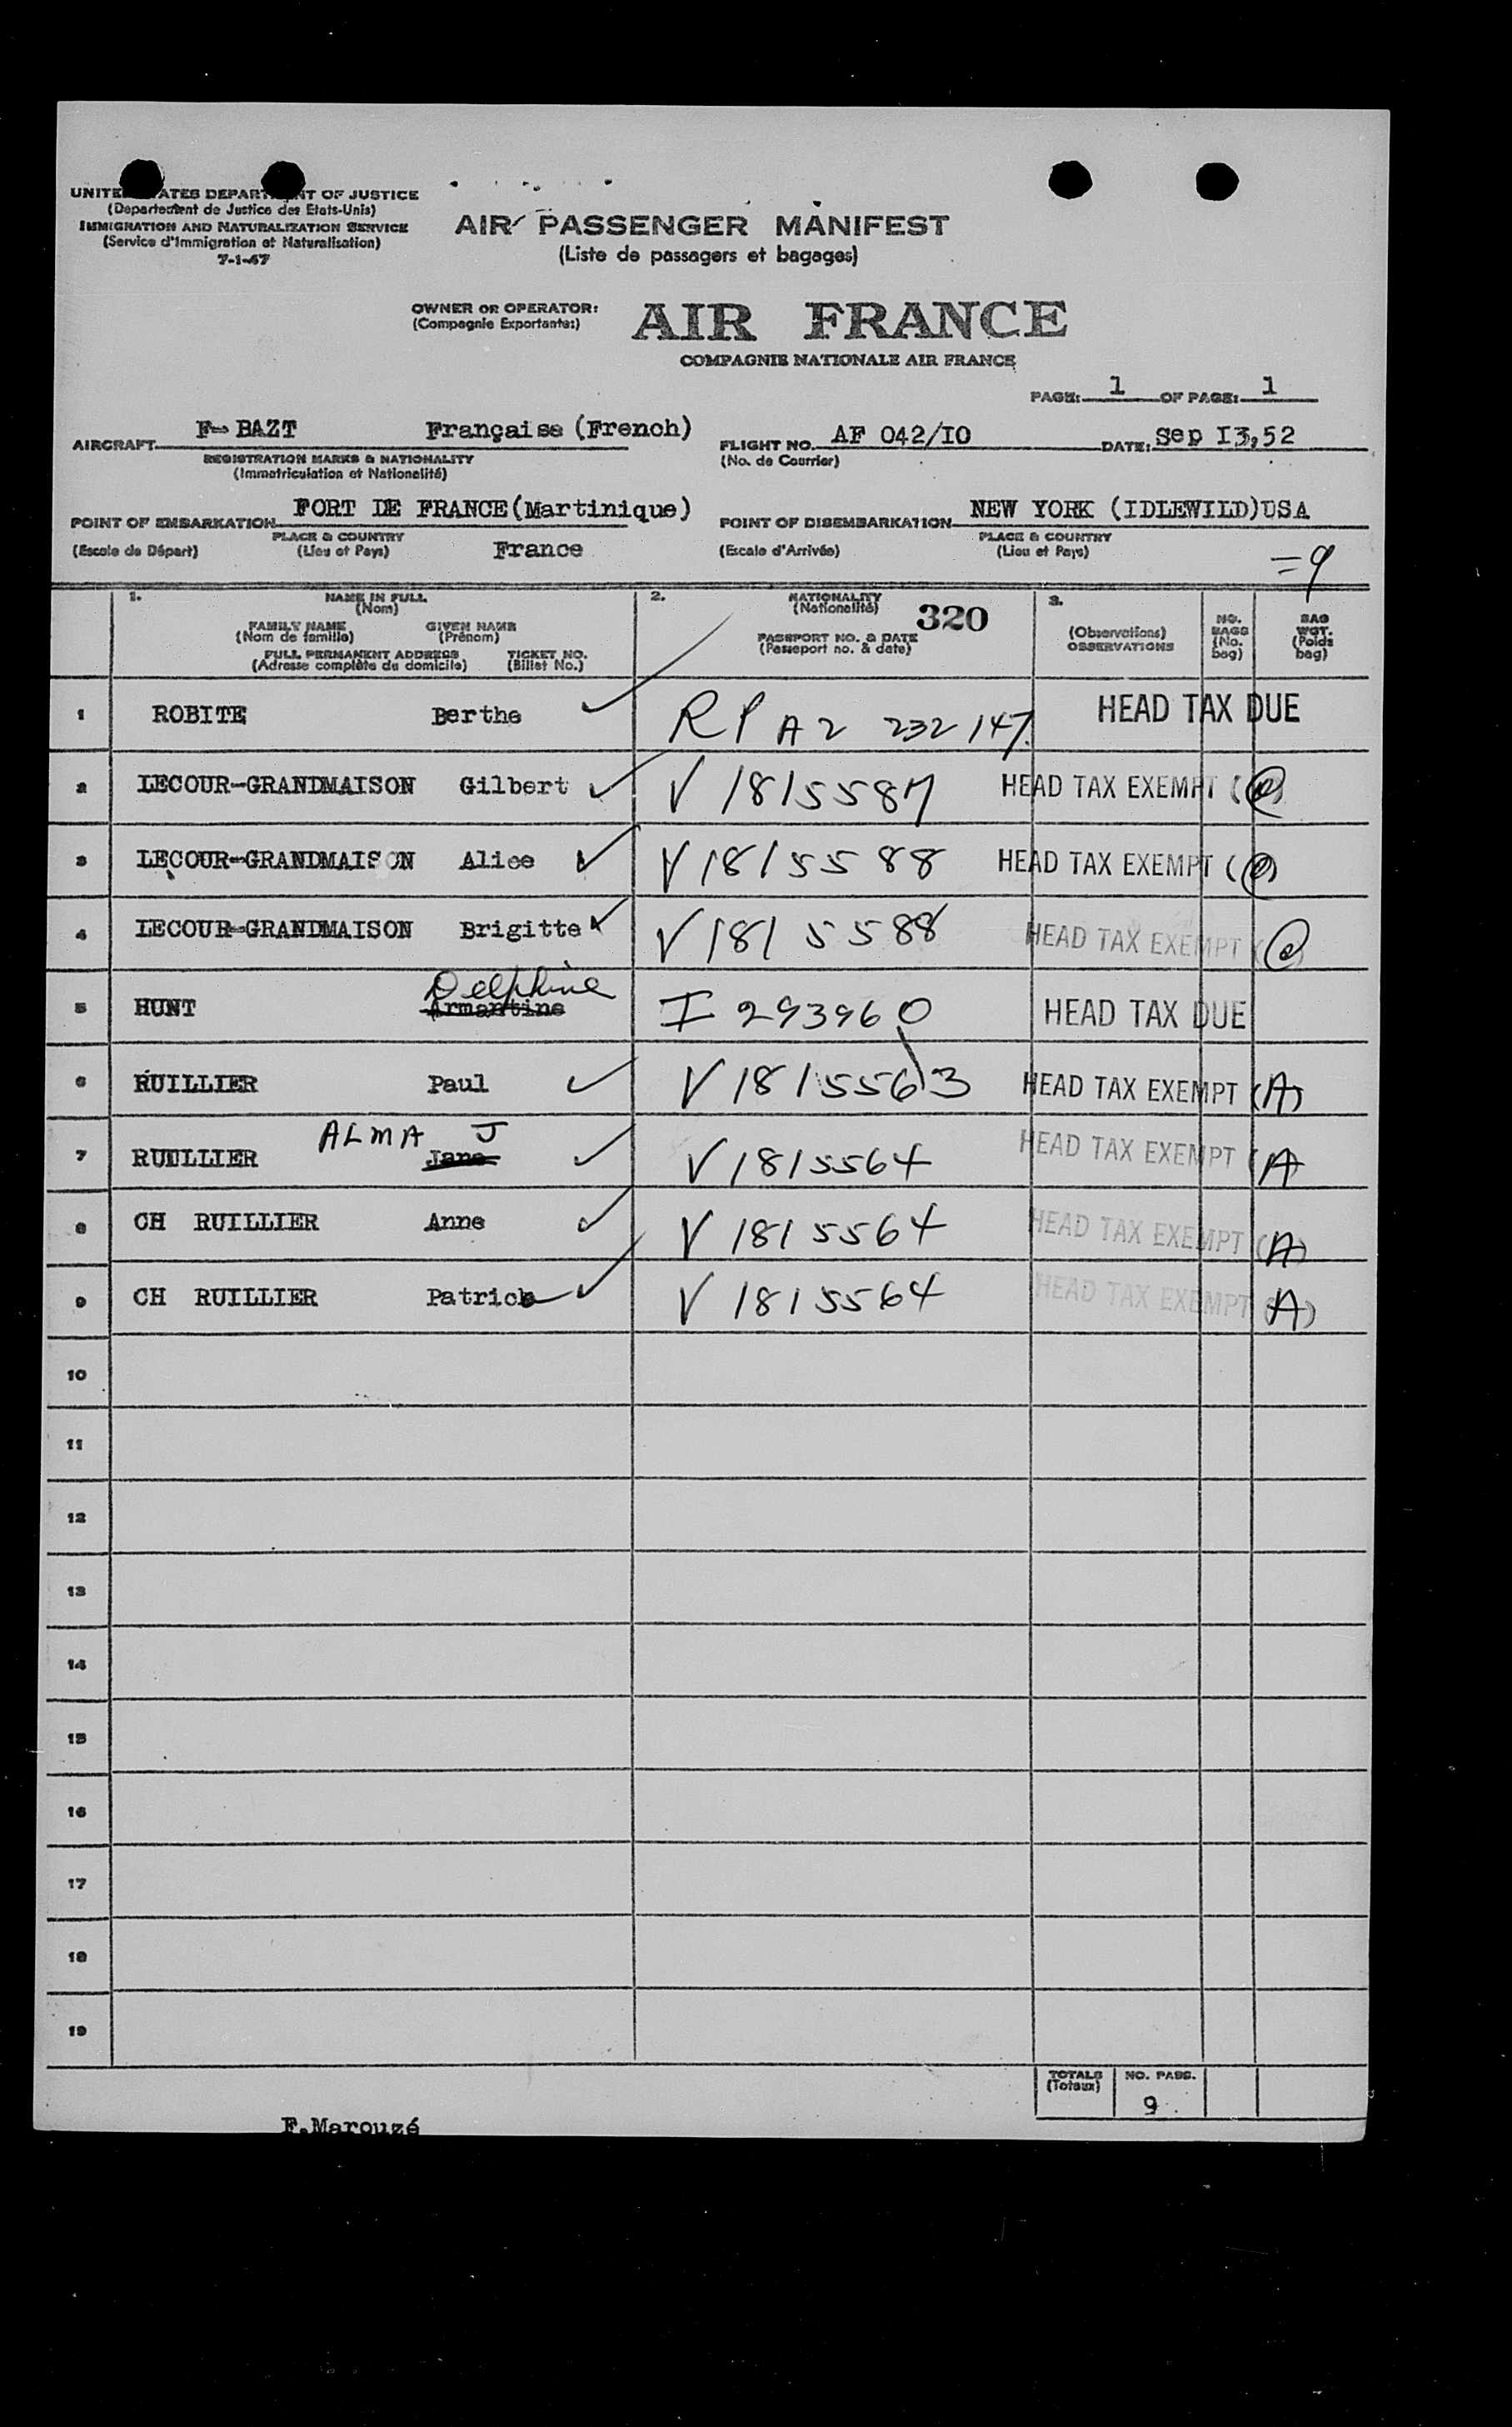 UNITED STATES DEPARTMENT OF JUSTICE
(Departement de Justice des Etats-Unis)
IMMIGRATION AND NATURALIZATION SERVICE
(Service d'Immigration et Naturalisation)
7-1-47
AIR PASSENGER MANIFEST
(Liste de passagers et bagages)
OWNER OR OPERATOR: AIR FRANCE
(Compagnie Exportante:)
COMPAGNIE NATIONALE AIR FRANCE
PAGE: 1 OF PAGE: 1
AIRCRAFT F-BAZT Française (French) FLIGHT NO. AF 042/IO DATE: Sep I3,52
REGISTRATION MARKS & NATIONALITY (No. de Courrier)
(Immatriculation et Nationalité)
POINT OF EMBARKATION FORT DE FRANCE(Martinique) POINT OF DISEMBARKATION NEW YORK (IDLEWILD)USA
PLACE & COUNTRY PLACE & COUNTRY
(Escale de Départ) (Lieu et Pays) France (Escale d'Arrivée) (Lieu et Pays) =9
1. NAME IN FULL 2. NATIONALITY 3.
(Nom) (Nationalité) 320
FAMILY NAME GIVEN NAME PASSPORT NO. & DATE (Observations) NO. BAGS BAG WGT.
(Nom de famille) (Prénom) (Passeport no. & date) OBSERVATIONS (No. bag) (Poids bag)
FULL PERMANENT ADDRESS TICKET NO.
(Adresse complète du domicile) (Billet No.)
1 ROBITE Berthe RP A2 232147 HEAD TAX DUE
2 LECOUR-GRANDMAISON Gilbert V 1815587 HEAD TAX EXEMPT
3 LECOUR-GRANDMAISON Alice V 1815588 HEAD TAX EXEMPT
4 LECOUR-GRANDMAISON Brigitte V 1815588 HEAD TAX EXEMPT
Delphine
5 HUNT Armantine I 293960 HEAD TAX DUE
6 RUILLIER Paul V 1815563 HEAD TAX EXEMPT (A)
ALMA J
7 RUILLIER Jane V 1815564 HEAD TAX EXEMPT (A)
8 CH RUILLIER Anne V 1815564 HEAD TAX EXEMPT (A)
9 CH RUILLIER Patrick V 1815564 HEAD TAX EXEMPT (A)
10
11
12
13
14
15
16
17
18
19
TOTALS NO. PASS.
(Totaux) 9
F.Marouzé